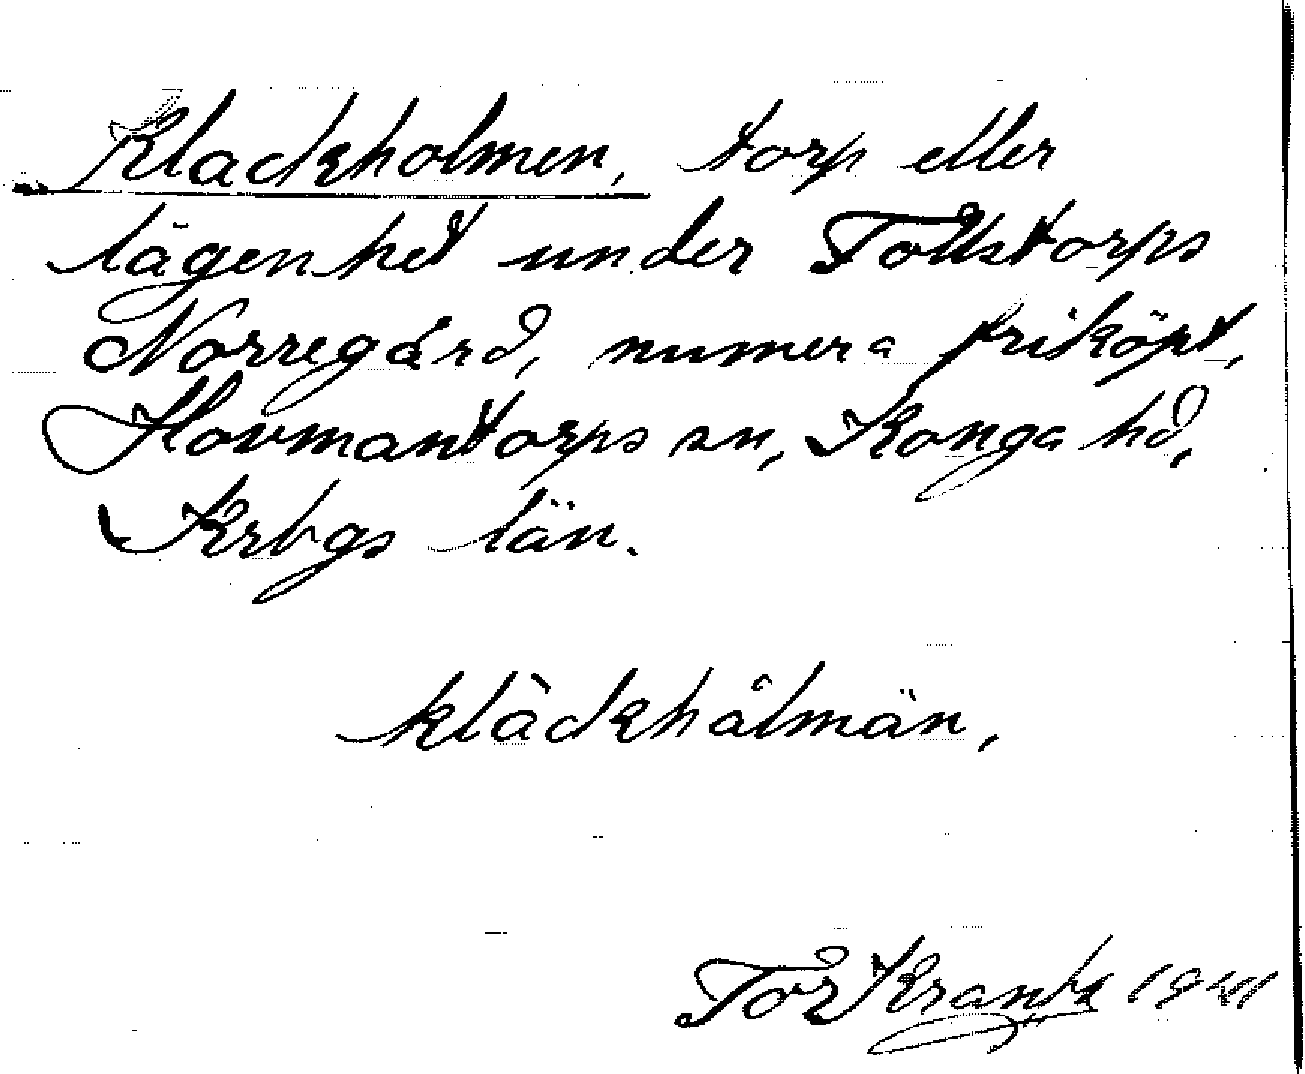 Klackholmen, torp eller
lägenhet under Tollstorps
Norregård, numera friköpt,
Hovmantorps sn, Konga hd,
Krbgs län.
klàckhålmän,
Tor Krantz 1941